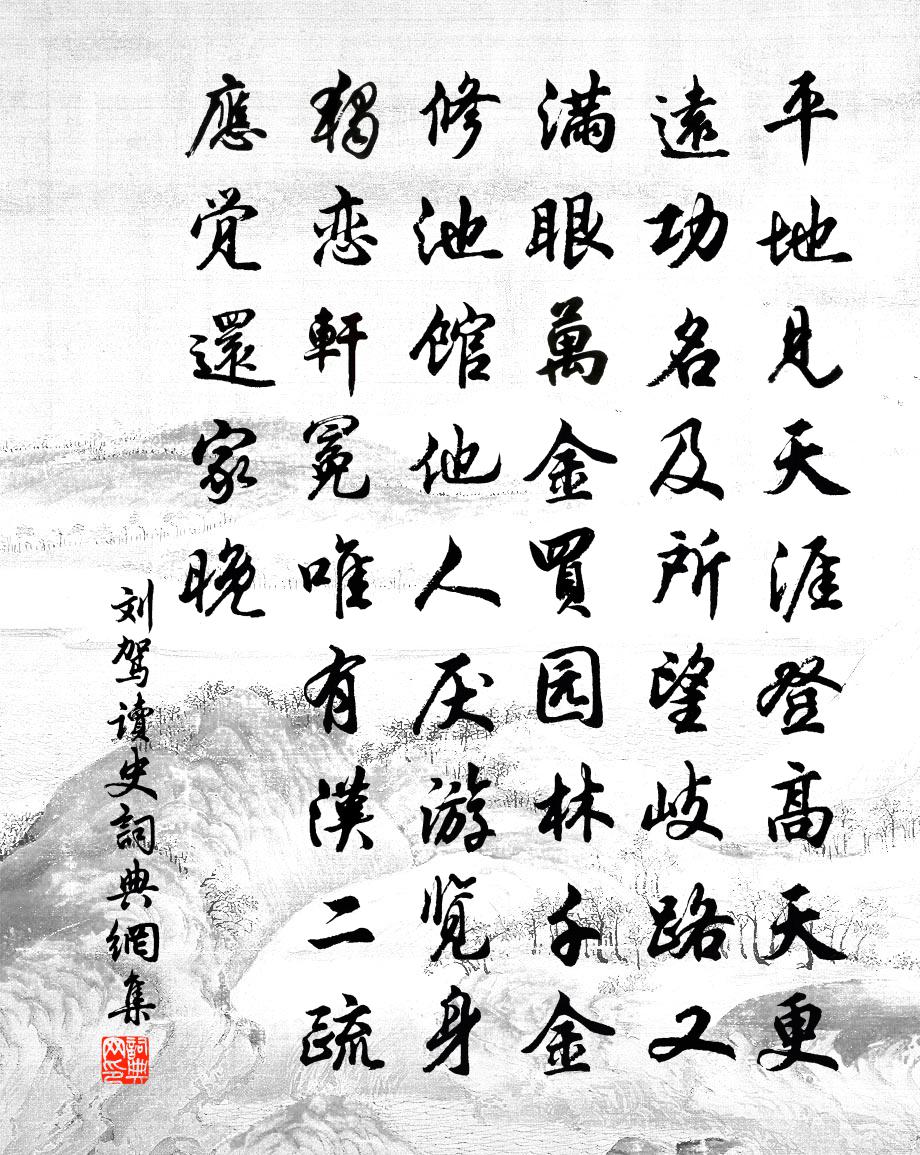 平地見天涯登高天更
遠功名及所望岐路又
滿眼萬金買园林千金
修池馆他人厌游览身
獨恋軒冕唯有漢二疏
應觉還家晚
刘驾讀史詞典網集
詞典
网印